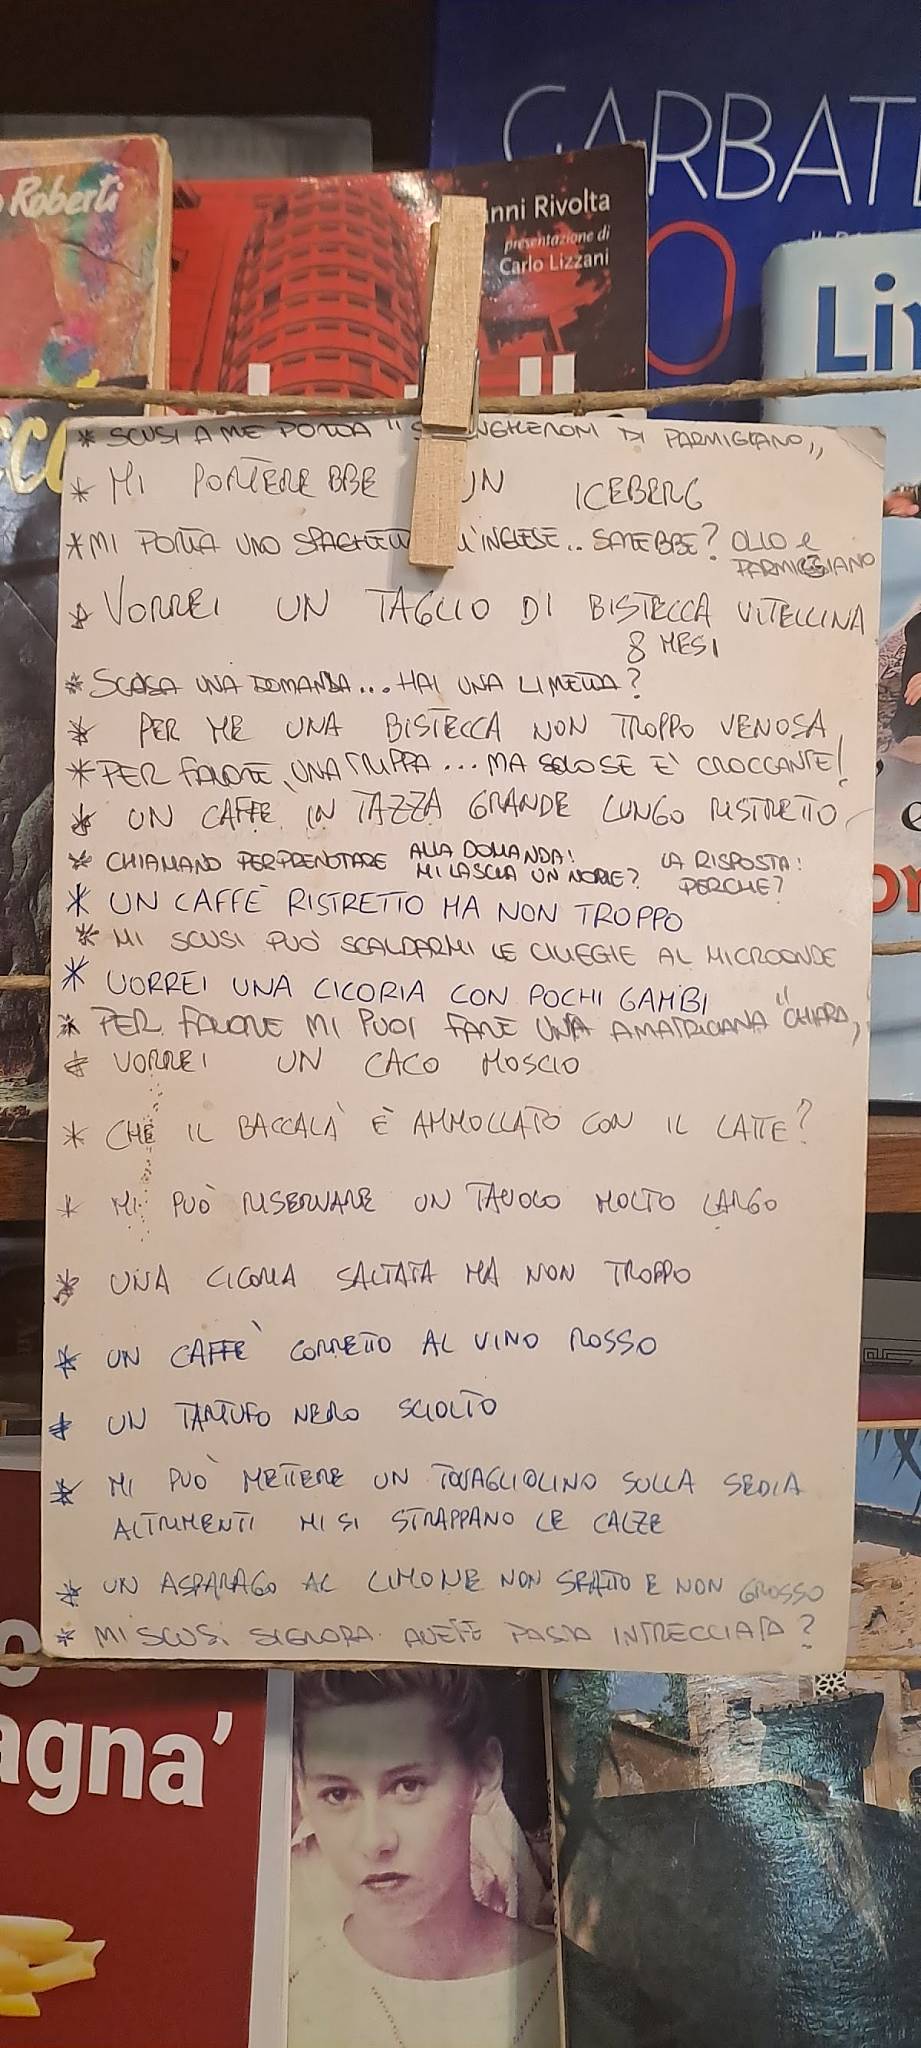 GARBAT
Roberti
nni Rivolta
presentazione di
Carlo Lizzani
Li
* SCUSI A ME PORTA " DI PARMIGIANO "
* MI PORTEREBBE UN ICEBERG
* MI PORTA UNO SPAGHETTO ALL'INGLESE .. SAREBBE? OLIO e
PARMIGIANO
* VORREI UN TAGLIO DI BISTECCA VITELLINA
8 MESI
* SCUSA UNA DOMANDA... HAI UNA LIMETTA?
* PER ME UNA BISTECCA NON TROPPO VENOSA
* PER FAVORE, UNA TRIPPA ... MA SOLO SE E' CROCCANTE!
* UN CAFFE IN TAZZA GRANDE LUNGO RISTRETTO
* CHIAMANO PER PRENOTARE ALLA DOMANDA! LA RISPOSTA!
MI LASCIA UN NOME? PERCHE?
* UN CAFFÈ RISTRETTO MA NON TROPPO
* MI SCUSI PUÒ SCALDARMI LE CILIEGIE AL MICROONDE
* VORREI UNA CICORIA CON POCHI GAMBI
* PER FAVORE MI PUOI FARE UNA AMATRICIANA "CHIARA"
* VORREI UN CACO MOSCIO
* CHE IL BACCALÀ È AMMOLLATO CON IL LATTE?
* MI PUÒ RISERVARE UN TAVOLO MOLTO LARGO
* UNA CICORIA SALTATA MA NON TROPPO
* UN CAFFÈ CORRETTO AL VINO ROSSO
* UN TARTUFO NERO SCIOLTO
* MI PUÒ METTERE UN TOVAGLIOLINO SULLA SEDIA
ALTRIMENTI MI SI STRAPPANO LE CALZE
* UN ASPARAGO AL LIMONE NON SFATTO E NON GROSSO
* MI SCUSI SIGNORA AVETE PASTA INTRECCIATA?
agna'